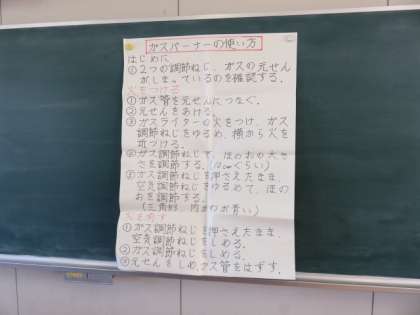 ガスバーナーの使い方
はじめに
◎2つの調節ねじ、ガスの元せん
がしまっているのを確認する。
火をつける
①ガス管を元せんにつなぐ。
②元せんをあける。
③ガスライターの火をつけ、ガス
調節ねじをゆるめ、横から火を
近づける。
④ガス調節ねじで、ほのおの大き
さを調節する。(10cmぐらい)
⑤ガス調節ねじを押さえたまま、
空気調節ねじをゆるめて、ほの
おを調節する。
(三角形 内がわが青い)
火を消す
①ガス調節ねじを押さえたまま、
空気調節ねじをしめる。
②ガス調節ねじをしめる。
③元せんをしめ、ガス管をはずす。